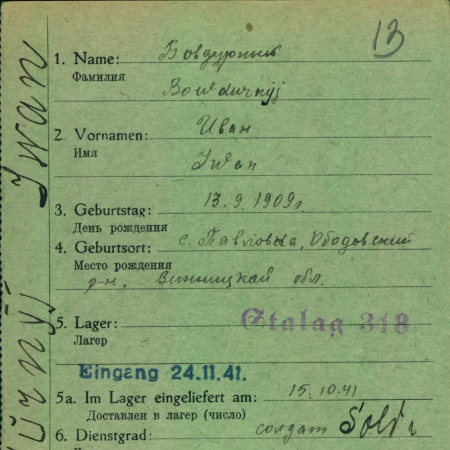 13
1. Name: Бовдурный
Фамилия
Bowdurnyj
2. Vornamen: Иван
Имя
Iwan
3. Geburtstag: 13.9.1909г.
День рождения
4. Geburtsort: с. Павловка, Ободовский
Место рождения
р-н, Винницкой обл.
5. Lager: Stalag 318
Лагерь
Eingang 24.11.41.
5a. Im Lager eingeliefert am: 15.10.41
Доставлен в лагер (число)
6. Dienstgrad: солдат
Iwan